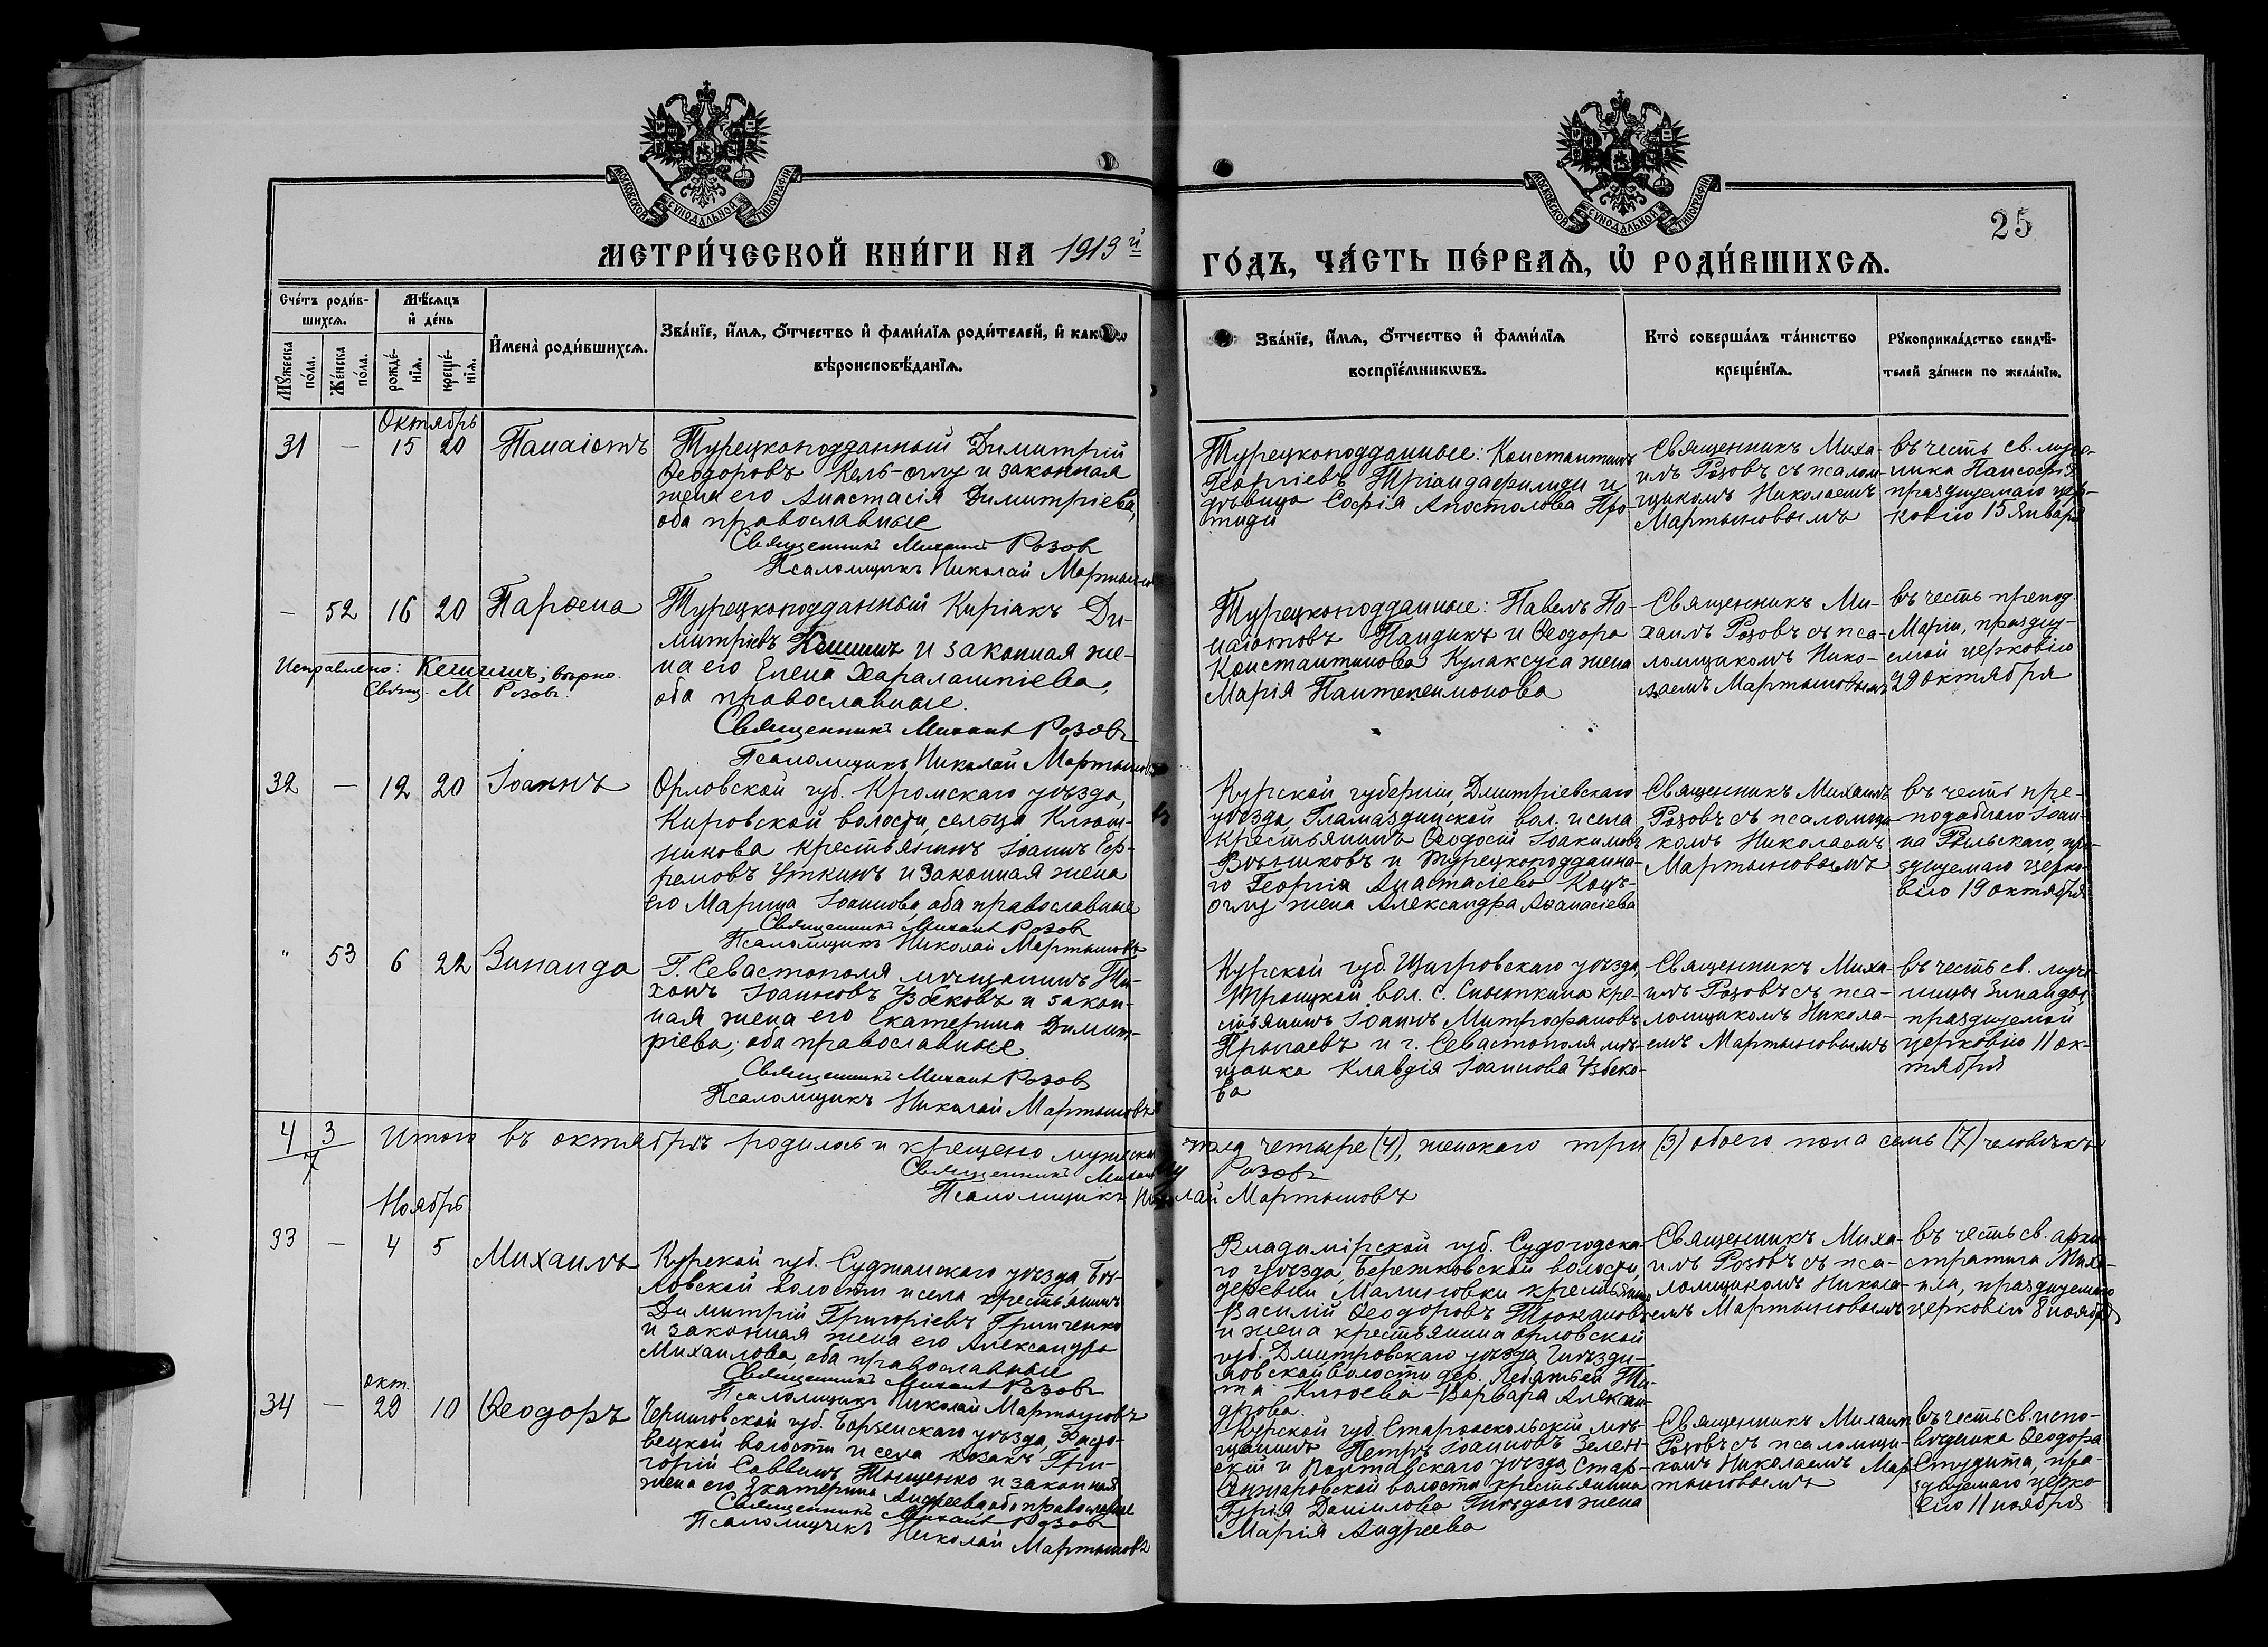 МОСКОВСКОЙ СѴНОДАЛЬНОЙ ТИПОГРАФІИ
МОСКОВСКОЙ СѴНОДАЛЬНОЙ ТИПОГРАФІИ
25
МЕТРИ́ЧЕСКОЙ КНИ́ГИ НА 1913й
ГО́ДЪ, ЧА́СТЬ ПЕ́РВАѦ, Ѡ҆ РОДИ́ВШИХСѦ.
Сче́тъ роди́в-
шихсѧ.
Мꙋ́жеска по́ла.
Же́нска по́ла.
Мѣ́сѧцъ
и҆ де́нь
рожде́-
нїѧ.
крещє́-
нїѧ.
И҆мена̀ роди́вшихсѧ.
Зва́нїе, и҆́мѧ, ѻ҆́тчество и҆ фами́лїѧ роди́телей, и҆ како́го
вѣроисповѣ́данїѧ.
Зва́нїе, и҆́мѧ, ѻ҆́тчество и҆ фами́лїѧ
воспрїе́мникѡвъ.
Кто̀ соверша́лъ та́инство
креще́нїѧ.
Рꙋкоприкла́дство свидѣ́-
телей за́писи по жела́нїю.
Октябрь
31 — 15 20 Панаіотъ
Турецкоподданный Димитрій
Ѳеодоровъ Кель-оглу и законная
жена его Анастасія Димитріева,
оба православные
Священникъ Михаилъ Розовъ
Псаломщикъ Николай Мартыновъ
Турецкоподданные: Константинъ
Георгіевъ Тріандафилиди и
дѣвица Софія Апостолова Про-
тиди
Священникъ Миха-
илъ Розовъ съ псалом-
щикомъ Николаемъ
Мартыновымъ
въ честь св. муче-
ника Пансофія
празднуемаго цер-
ковію 15 января
— 52 16 20 Парѳена
Турецкоподданный Киріакъ Ди-
митріевъ и законная же-
на его Елена Харалампіева,
оба православные.
Священникъ Михаилъ Розовъ
Псаломщикъ Николай Мартыновъ
Исправлено: Кешишъ; вѣрно.
Свящ. М. Розовъ.
Турецкоподданные: Павелъ Па-
наіотовъ Пандикъ и Ѳеодора
Константинова Кулаксуса жена
Марія Пантелеимонова
Священникъ Ми-
хаилъ Розовъ съ пса-
ломщикомъ Нико-
лаемъ Мартыновымъ
въ честь препод.
Маріи, праздну-
емой церковію
29 октября
32 — 12 20 Іоаннъ
Орловской губ. Кромскаго уѣзда,
Кировской волости, сельца Клюш-
никова крестьянинъ Іоаннъ Еф-
ремовъ Уткинъ и законная жена
его Марица Іоаннова, оба православные
Священникъ Михаилъ Розовъ
Псаломщикъ Николай Мартыновъ
Курской губерніи, Дмитріевскаго
уѣзда, Гламаздинской вол. и села
крестьянинъ Ѳеодосій Іоакимовъ
и турецкоподданна-
го Георгія Анастасіева Коцъ-
оглу жена Александра Аѳанасіева
Священникъ Михаилъ
Розовъ съ псаломщи-
комъ Николаемъ
Мартыновымъ
въ честь пре-
подобнаго Іоан-
на Рыльскаго, пра-
зднуемаго церко-
вію 19 октября
" 53 6 22 Зинаида
Г. Севастополя мѣщанинъ Ти-
хонъ Іоанновъ Узбековъ и закон-
ная жена его Екатерина Димит-
ріева; оба православные.
Священникъ Михаилъ Розовъ
Псаломщикъ Николай Мартыновъ
Курской губ. Щигровскаго уѣзда,
Троицкой вол. с. Сныткина кре-
стьянинъ Іоаннъ Митрофановъ
и г. Севастополя мѣ-
щанка Клавдія Іоаннова Узбеко-
ва
Священникъ Миха-
илъ Розовъ съ пса-
ломщикомъ Никола-
емъ Мартыновымъ
въ честь св. муче-
ницы Зинаиды,
празднуемой
церковію 11 ок-
тября
4 3 Итого въ октябрѣ родилось и крещено мужеска пола четыре (4), женскаго три (3) обоего пола семь (7) человѣкъ
7
Священникъ Михаилъ Розовъ
Псаломщикъ Николай Мартыновъ
Ноябрь
33 — 4 5 Михаилъ
Курской губ. Суджанскаго уѣзда, Бѣ-
ловской волости и села крестьянинъ
Димитрій Григоріевъ Гринченко
и законная жена его Александра
Михаилова, оба православные
Священникъ Михаилъ Розовъ
Псаломщикъ Николай Мартыновъ
Владимірской губ. Судогодска-
го уѣзда, Бережковской волости,
деревни Малиновки крестьянинъ
Василій Ѳеодоровъ Тюкановъ
и жена крестьянина Орловской
губ. Дмитровскаго уѣзда Гнѣзди-
ловской волости дер. Лебяжьей Ти-
та Клюева — Варвара Алексан-
дрова.
Священникъ Миха-
илъ Розовъ съ пса-
ломщикомъ Никола-
емъ Мартыновымъ
въ честь св. архи-
стратига Миха-
ила, празднуемаго
церковію 8 ноября
окт.
34 — 29 10 Ѳеодоръ
Черниговской губ. Борзенскаго уѣзда,
вецкой волости и села козакъ Гри-
горій Саввинъ Тыщенко и законная
жена его Екатерина Андреева, оба православные
Священникъ Михаилъ Розовъ
Псаломщикъ Николай Мартыновъ
Курской губ. Старооскольскій мѣ-
щанинъ Петръ Іоанновъ Зелен-
скій и Полтавскаго уѣзда, Стар-
Санжаровской волости крестьянина
Гурія Даніилова Гнѣдаго жена
Марія Андреева
Священникъ Михаилъ
Розовъ съ псаломщи-
комъ Николаемъ Мар-
тыновымъ
въ честь св. испо-
вѣдника Ѳеодора
Студита, пра-
зднуемаго церко-
вію 11 ноября